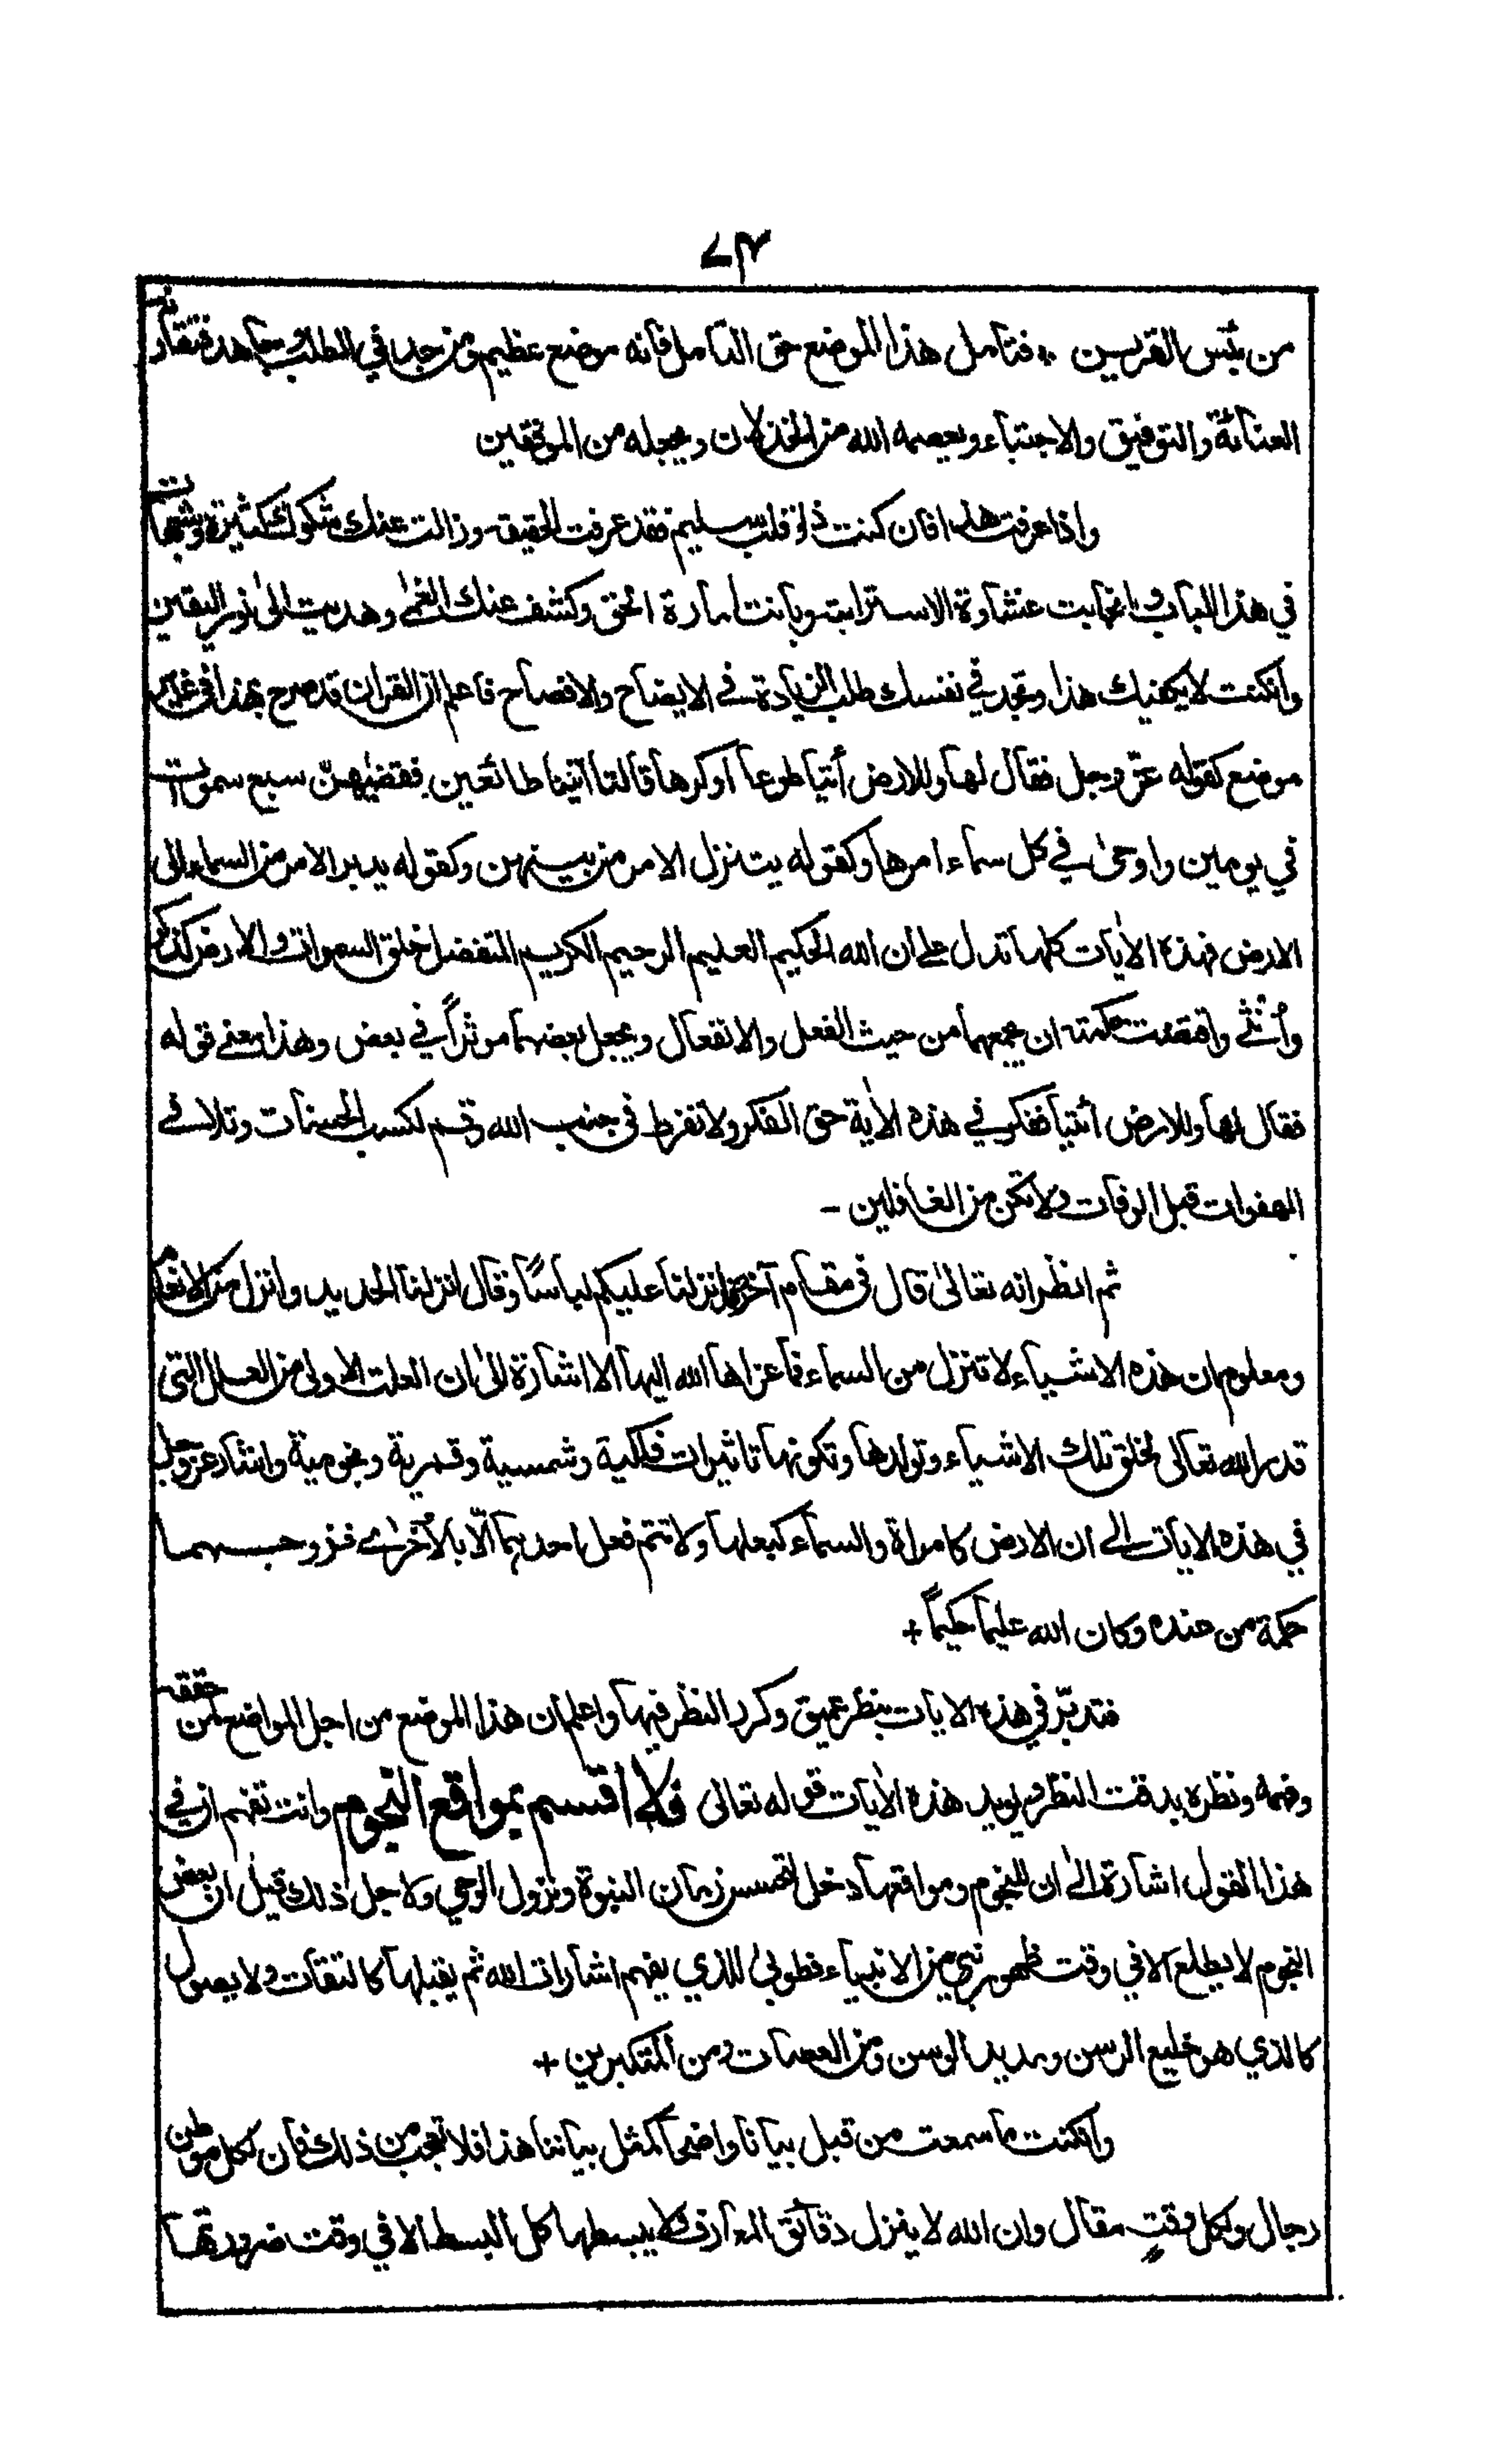 ٧٣
من بئس القرين ؞ فتامل هذا الموضع حق التامل فانه موضع عظيم ومن جد في الطلب وجاهد فتقاربه
العناية والتوفيق والاجتباء ويعصمه الله من الخذلان ويجعله من الموفقين
واذا عرفت هذا فان كنت ذا قلب سليم فقد عرفت الحقيقة وزالت عنك شكوك كثيرة وشبهات
في هذا الباب وانجابت غشاوة الاسترابة وبانت امارة الحق وكشف عنك الغمى وهديت الى نور اليقين
وانكنت لا يكفيك هذا وتجد في نفسك طلب الزيادة في الايضاح والافصاح فاعلم ان القران قد صرح بهذا في غير
موضع كقوله عز وجل فقال لها وللارض أئتيا طوعا اوكرها قالتا اتينا طائعين فقضٰهن سبع سموات
في يومين واوحى في كل سماء امرها وكقوله يتنزل الامر من بينهن وكقوله يدبر الامر من السماء الى
الارض فهذه الايات كلها تدل على ان الله الحكيم العليم الرحيم الكريم المتفضل خلق السموات والارض كذكر
وأُنثى واقتضت حكمته ان يجمعهما من حيث الفعل والانفعال ويجعل بعضهما موثراً في بعض وهذا معنى قوله
فقال لها وللارض أئتيا ففكر في هذه الاٰية حق الفكر ولا تفرط في جنب الله وقم لكسب الحسنات وتلافى
الهفوات قبل الوفات ولا تكن من الغافلين -
ثم انظر انه تعالى قال في مقام آخر انزلنا عليكم لباسًا وقال انزلنا الحديد وانزل من الانعام
ومعلوم ان هذه الاشياء لا تنزل من السماء فما عزاها الله اليها الا اشارة الى ان العلت الاولى من العلل التي
قدر الله تعالى لخلق تلك الاشياء وتولدها وتكونها تاثيرات فلكية وشمسية وقمرية ونجومية واشار عز وجل
في هذه الايات الى ان الارض كامراة والسماء كبعلها ولا تتم فعل احدهما الّا بالأخرى فزوجهما
حكمة من عنده وكان الله عليمًا حكيمًا +
فتدبّر في هذه الايات بنظر عميق وكرر النظر فيها واعلم ان هذا الموضع من اجل المواضع لمن حققه
وفهمه ونظره بدقت النظر ويويد هذه الاٰيات قوله تعالى فلا اقسم بمواقع النجوم وانت تفهم ان في
هذا القول اشارة الى ان للنجوم ومواقعها دخل لتحسس زمان النبوة ونزول الوحي ولاجل ذلك قيل ان بعض
النجوم لا يطلع الا في وقت ظهور نبي من الانبياء فطوبى للذي يفهم اشارات الله ثم يقبلها كالثقات ولا يصول
كالذي هو خليع الرسن ومديد الوسن ومن العصات ومن المتكبرين +
وانكنت ما سمعت من قبل بيانا واضحا كمثل بياننا هذا فلا تعجب من ذلك فان لكل موطن
رجال ولكل وقتٍ مقال وان الله لا ينزل دقائق المعارف ولا يبسطها كل البسط الا في وقت ضرورتها